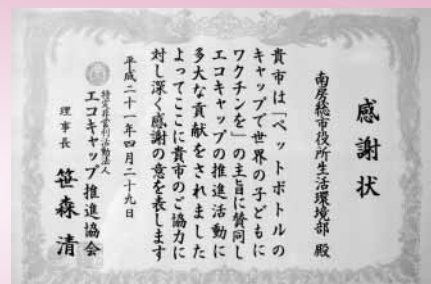 感謝状
南房総市役所生活環境部 殿
貴市は「ペットボトルの
キャップで世界の子どもに
ワクチンを」の主旨に賛同し
エコキャップの推進活動に
多大な貢献をされました
よってここに貴市のご協力に
対し深く感謝の意を表します
平成二十一年四月二十九日
特定非営利活動法人
エコキャップ推進協会
理事長 笹森清